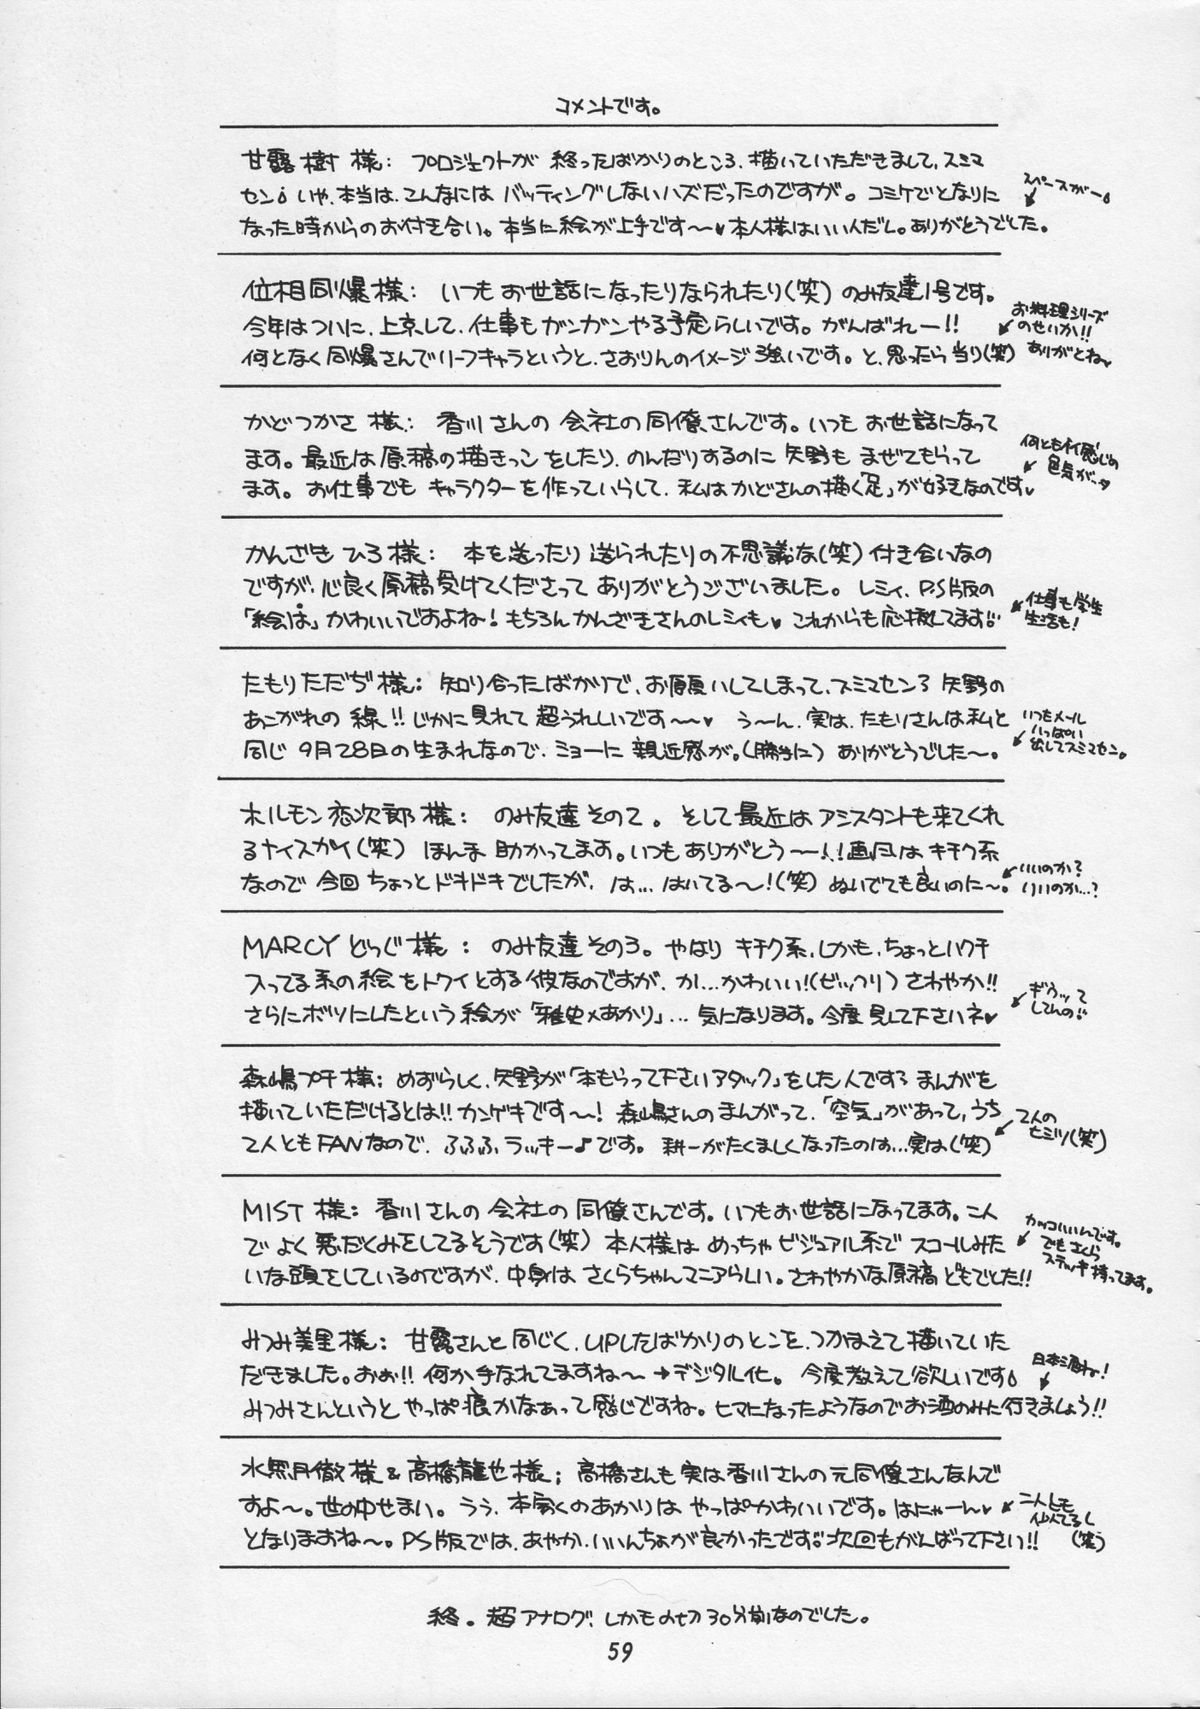 コメントです。
甘露樹様: プロジェクトが終ったばかりのところ、描いていただきまして、スミマ
セン いや、本当は、こんなにはバッティングしないハズだったのですが。コミケでとなりに
なった時からのお付き合い。本当に絵が上手です〜♥本人様はいい人だし。ありがとうでした。
スペースがー
位相同爆様: いつもお世話になったりなられたり(笑)のみ友達1号です。
今年はついに、上京して、仕事もガンガンやる予定らしいです。がんばれー!!
何となく同爆さんでリーフキャラというと、さおりんのイメージ強いです。と、思ったら当り(笑)
お料理シリーズ
のせいか!!
ありがとね♥
かどつかさ様: 香川さんの会社の同僚さんです。いつもお世話になって
ます。最近は原稿の描きっこをしたり、のんだりするのに矢野もまぜてもらって
ます。お仕事でもキャラクターを作っていらして、私はかどさんの描く「足」が好きなのです♥
何ともイイ感じの
色気が…♥
かんざきひろ様: 本を送ったり送られたりの不思議な(笑)付き合いなの
ですが、心良く原稿受けてくださってありがとうございました。レミィ、PS版の
「絵は」かわいいですよね!もちろんかんざきさんのレミィも♥これからも応援してます!!
仕事も学生
生活も!
たもりただぢ様: 知り合ったばかりで、お願いしてしまって、スミマセンろ 矢野の
あこがれの線!!じかに見れて超うれしいです〜〜♥ う〜ん、実は、たもりさんは私と
同じ9月28日の生まれなので、ミョーに親近感が。(勝手に)ありがとうでした〜。
いつもメール
いっぱい
出してスミマセン。
ホルモン恋次郎様: のみ友達その2。そして最近はアシスタントも来てくれ
るナイスガイ(笑) ほんま助かってます。いつもありがとう〜!!画風はキチク系
なので今回ちょっとドキドキでしたが、は…はいてる〜!(笑)ぬいでても良いのに〜。
いいのか?
いいのか…?
MARCYどっぐ様: のみ友達その3。やはりキチク系、しかも、ちょっとハクチ
入ってる系の絵をトクイとする彼なのですが、か…かわいい!(ビックリ)さわやか!!
さらにボツにしたという絵が「雅史×あかり」…気になります。今度見して下さいネ♥
ギクッて
してんの!!
森嶋プチ様: めずらしく、矢野が「本もらって下さいアタック」をした人ですろ まんがを
描いていただけるとは!!カンゲキです〜!森嶋さんのまんがって、「空気」があって、うち
2人ともFANなので、ふふふラッキー♪です。耕一がたくましくなったのは…実は(笑)
2人の
ヒミツ(笑)
MIST様: 香川さんの会社の同僚さんです。いつもお世話になってます。二人
でよく悪だくみをしてるそうです(笑)本人様はめっちゃビジュアル系でスコールみた
いな頭をしているのですが、中身はさくらちゃんマニアらしい。さわやかな原稿どもでした!!
カッコいいんです。
でもさくら
ステッキ持ってます。
みつみ美里様: 甘露さんと同じく、UPしたばかりのとこを、つかまえて描いていた
だきました。おぉ!!何か手なれてますね〜→デジタル化。今度教えて欲しいです
みつみさんというとやっぱ痕かなあって感じですね。ヒマになったようなのでお酒のみた行きましょう!!
日本酒ね!
水無月徹様&高橋龍也様; 高橋さんも実は香川さんの元同僚さんなんで
すよ〜。世の中せまい。うぅ、本家のあかりはやっぱかわいいです。はにゃーん♥
となりますね〜。PS版では、あやか、いいんちょが良かったです!!次回もがんばって下さい!!
二人とも
似てるし
(笑)
終。超アナログ、しかも〆切30分前なのでした。
59